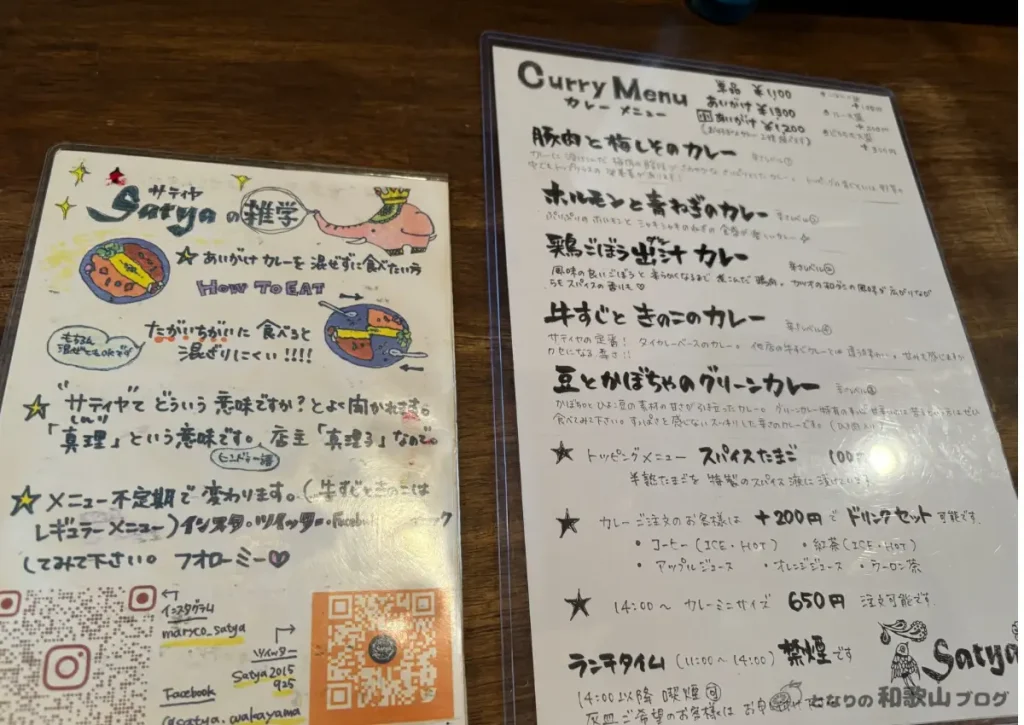 サティヤ
Satyaの雑学
あいがけカレーを混ぜずに食べたい方
HOW TO EAT
もちろん
混ぜてもOKです
たがいちがいに食べると
混ざりにくい!!!!
"サティヤ"てどういう意味ですか?とよく聞かれます。
しんり
「真理」という意味です。店主「真理子」なので。
ヒンドゥー語
メニュー不定期で変わります。(牛すじときのこは
レギュラーメニュー)インスタ・ツイッター・Facebook
してみて下さい。フォローミー♡
インスタグラム
maryco_satya
ツイッター
Satya2015
925
Facebook
@satya.wakayama
Curry Menu
カレーメニュー
単品 ¥1,100
あいがけ ¥1,300
あいがけ ¥1,200
豚肉と梅しそのカレー
ホルモンと青ねぎのカレー
ぷりぷりのホルモンとシャキシャキのねぎの食感が楽しいカレー
鶏ごぼう出汁カレー
風味の良いごぼうと柔らかくなるまで煮こんだ鶏肉。カツオの和だしの風味が広がりなが
らもスパイスの香りも♡
牛すじときのこのカレー
サティヤの定番!タイカレーベースのカレー。
クセになる辛さ!!
豆とかぼちゃのグリーンカレー
かぼちゃとひよこ豆の素材の甘さが引き立ったカレー。
食べてみて下さい。
★ トッピングメニュー スパイスたまご 100
半熟たまごを特製のスパイス液に漬けています
★ カレーご注文のお客様は +200円でドリンクセット可能です
・コーヒー(ICE・HOT) ・紅茶(ICE・HOT)
・アップルジュース ・オレンジジュース ・ウーロン茶
★ 14:00〜 カレーミニサイズ 650円 注文可能です
ランチタイム(11:00〜14:00)禁煙です
14:00以降 喫煙可
灰皿ご希望のお客様は
Satya
となりの和歌山ブログ